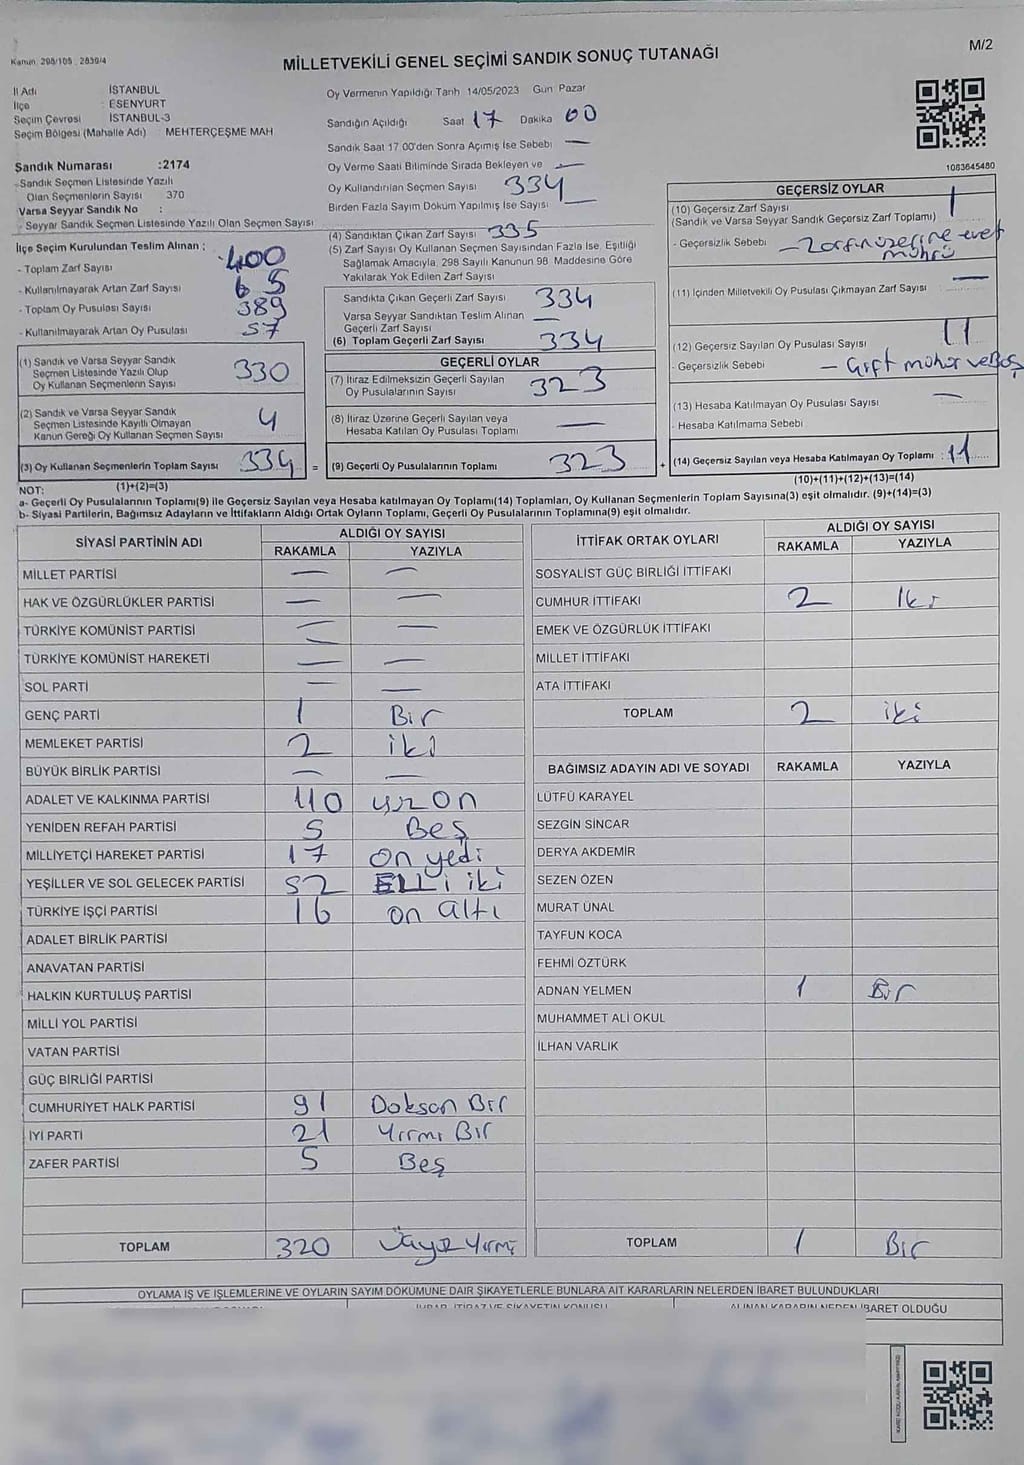 M/2
Kanun: 298/105 2839/4
MİLLETVEKİLİ GENEL SEÇİMİ SANDIK SONUÇ TUTANAĞI
İl Adı : İSTANBUL
İlçe : ESENYURT
Seçim Çevresi : İSTANBUL-3
Seçim Bölgesi (Mahalle Adı) : MEHTERÇEŞME MAH
Sandık Numarası :2174
-Sandık Seçmen Listesinde Yazılı
Olan Seçmenlerin Sayısı 370
Varsa Seyyar Sandık No :
- Seyyar Sandık Seçmen Listesinde Yazılı Olan Seçmen Sayısı
İlçe Seçim Kurulundan Teslim Alınan ;
- Toplam Zarf Sayısı 400
- Kullanılmayarak Artan Zarf Sayısı 65
- Toplam Oy Pusulası Sayısı 389
- Kullanılmayarak Artan Oy Pusulası 57
(1) Sandık ve Varsa Seyyar Sandık
Seçmen Listesinde Yazılı Olup
Oy Kullanan Seçmenlerin Sayısı 330
(2) Sandık ve Varsa Seyyar Sandık
Seçmen Listesinde Kayıtlı Olmayan
Kanun Gereği Oy Kullanan Seçmen Sayısı 4
(3) Oy Kullanan Seçmenlerin Toplam Sayısı 334 =
(1)+(2)=(3)
Oy Vermenin Yapıldığı Tarih 14/05/2023 Gün Pazar
Sandığın Açıldığı Saat 17 Dakika 00
Sandık Saat 17.00'den Sonra Açımış İse Sebebi —
Oy Verme Saati Bitiminde Sırada Bekleyen ve —
Oy Kullandırılan Seçmen Sayısı 334
Birden Fazla Sayım Döküm Yapılmış İse Sayısı —
(4) Sandıktan Çıkan Zarf Sayısı 335
(5) Zarf Sayısı Oy Kullanan Seçmen Sayısından Fazla İse, Eşitliği
Sağlamak Amacıyla, 298 Sayılı Kanunun 98. Maddesine Göre
Yakılarak Yok Edilen Zarf Sayısı
Sandıkta Çıkan Geçerli Zarf Sayısı 334
Varsa Seyyar Sandıktan Teslim Alınan —
Geçerli Zarf Sayısı
(6) Toplam Geçerli Zarf Sayısı 334
GEÇERLİ OYLAR
(7) İtiraz Edilmeksizin Geçerli Sayılan
Oy Pusulalarının Sayısı 323
(8) İtiraz Üzerine Geçerli Sayılan veya
Hesaba Katılan Oy Pusulası Toplamı —
(9) Geçerli Oy Pusulalarının Toplamı 323 +
1083645480
GEÇERSİZ OYLAR
(10) Geçersiz Zarf Sayısı 1
(Sandık ve Varsa Seyyar Sandık Geçersiz Zarf Toplamı)
- Geçersizlik Sebebi - Zarfın üzerine evet
mührü
(11) İçinden Milletvekili Oy Pusulası Çıkmayan Zarf Sayısı —
(12) Geçersiz Sayılan Oy Pusulası Sayısı 11
- Geçersizlik Sebebi - Çift mühür ve Boş
(13) Hesaba Katılmayan Oy Pusulası Sayısı —
- Hesaba Katılmama Sebebi
(14) Geçersiz Sayılan veya Hesaba Katılmayan Oy Toplamı : 11
(10)+(11)+(12)+(13)=(14)
NOT:
a- Geçerli Oy Pusulalarının Toplamı(9) ile Geçersiz Sayılan veya Hesaba katılmayan Oy Toplamı(14) Toplamları, Oy Kullanan Seçmenlerin Toplam Sayısına(3) eşit olmalıdır. (9)+(14)=(3)
b- Siyasi Partilerin, Bağımsız Adayların ve İttifakların Aldığı Ortak Oyların Toplamı, Geçerli Oy Pusulalarının Toplamına(9) eşit olmalıdır.
SİYASİ PARTİNİN ADI ALDIĞI OY SAYISI
RAKAMLA YAZIYLA
MİLLET PARTİSİ — —
HAK VE ÖZGÜRLÜKLER PARTİSİ — —
TÜRKİYE KOMÜNİST PARTİSİ — —
TÜRKİYE KOMÜNİST HAREKETİ — —
SOL PARTİ — —
GENÇ PARTİ 1 Bir
MEMLEKET PARTİSİ 2 iki
BÜYÜK BİRLİK PARTİSİ — —
ADALET VE KALKINMA PARTİSİ 110 yüz on
YENİDEN REFAH PARTİSİ 5 Beş
MİLLİYETÇİ HAREKET PARTİSİ 17 on yedi
YEŞİLLER VE SOL GELECEK PARTİSİ 52 ELLİ iki
TÜRKİYE İŞÇİ PARTİSİ 16 on altı
ADALET BİRLİK PARTİSİ
ANAVATAN PARTİSİ
HALKIN KURTULUŞ PARTİSİ
MİLLİ YOL PARTİSİ
VATAN PARTİSİ
GÜÇ BİRLİĞİ PARTİSİ
CUMHURİYET HALK PARTİSİ 91 Doksan Bir
İYİ PARTİ 21 Yirmi Bir
ZAFER PARTİSİ 5 Beş
TOPLAM 320 Üçyüz Yirmi
İTTİFAK ORTAK OYLARI ALDIĞI OY SAYISI
RAKAMLA YAZIYLA
SOSYALİST GÜÇ BİRLİĞİ İTTİFAKI
CUMHUR İTTİFAKI 2 İki
EMEK VE ÖZGÜRLÜK İTTİFAKI
MİLLET İTTİFAKI
ATA İTTİFAKI
TOPLAM 2 iki
BAĞIMSIZ ADAYIN ADI VE SOYADI RAKAMLA YAZIYLA
LÜTFÜ KARAYEL
SEZGİN SİNCAR
DERYA AKDEMİR
SEZEN ÖZEN
MURAT ÜNAL
TAYFUN KOCA
FEHMİ ÖZTÜRK
ADNAN YELMEN 1 Bir
MUHAMMET ALİ OKUL
İLHAN VARLIK
TOPLAM 1 Bir
OYLAMA İŞ VE İŞLEMLERİNE VE OYLARIN SAYIM DÖKÜMÜNE DAİR ŞİKAYETLERLE BUNLARA AİT KARARLARIN NELERDEN İBARET BULUNDUKLARI
İHBAR, İTİRAZ VE ŞİKAYETİN KONUSU ALINAN KARARIN NEDEN İBARET OLDUĞU